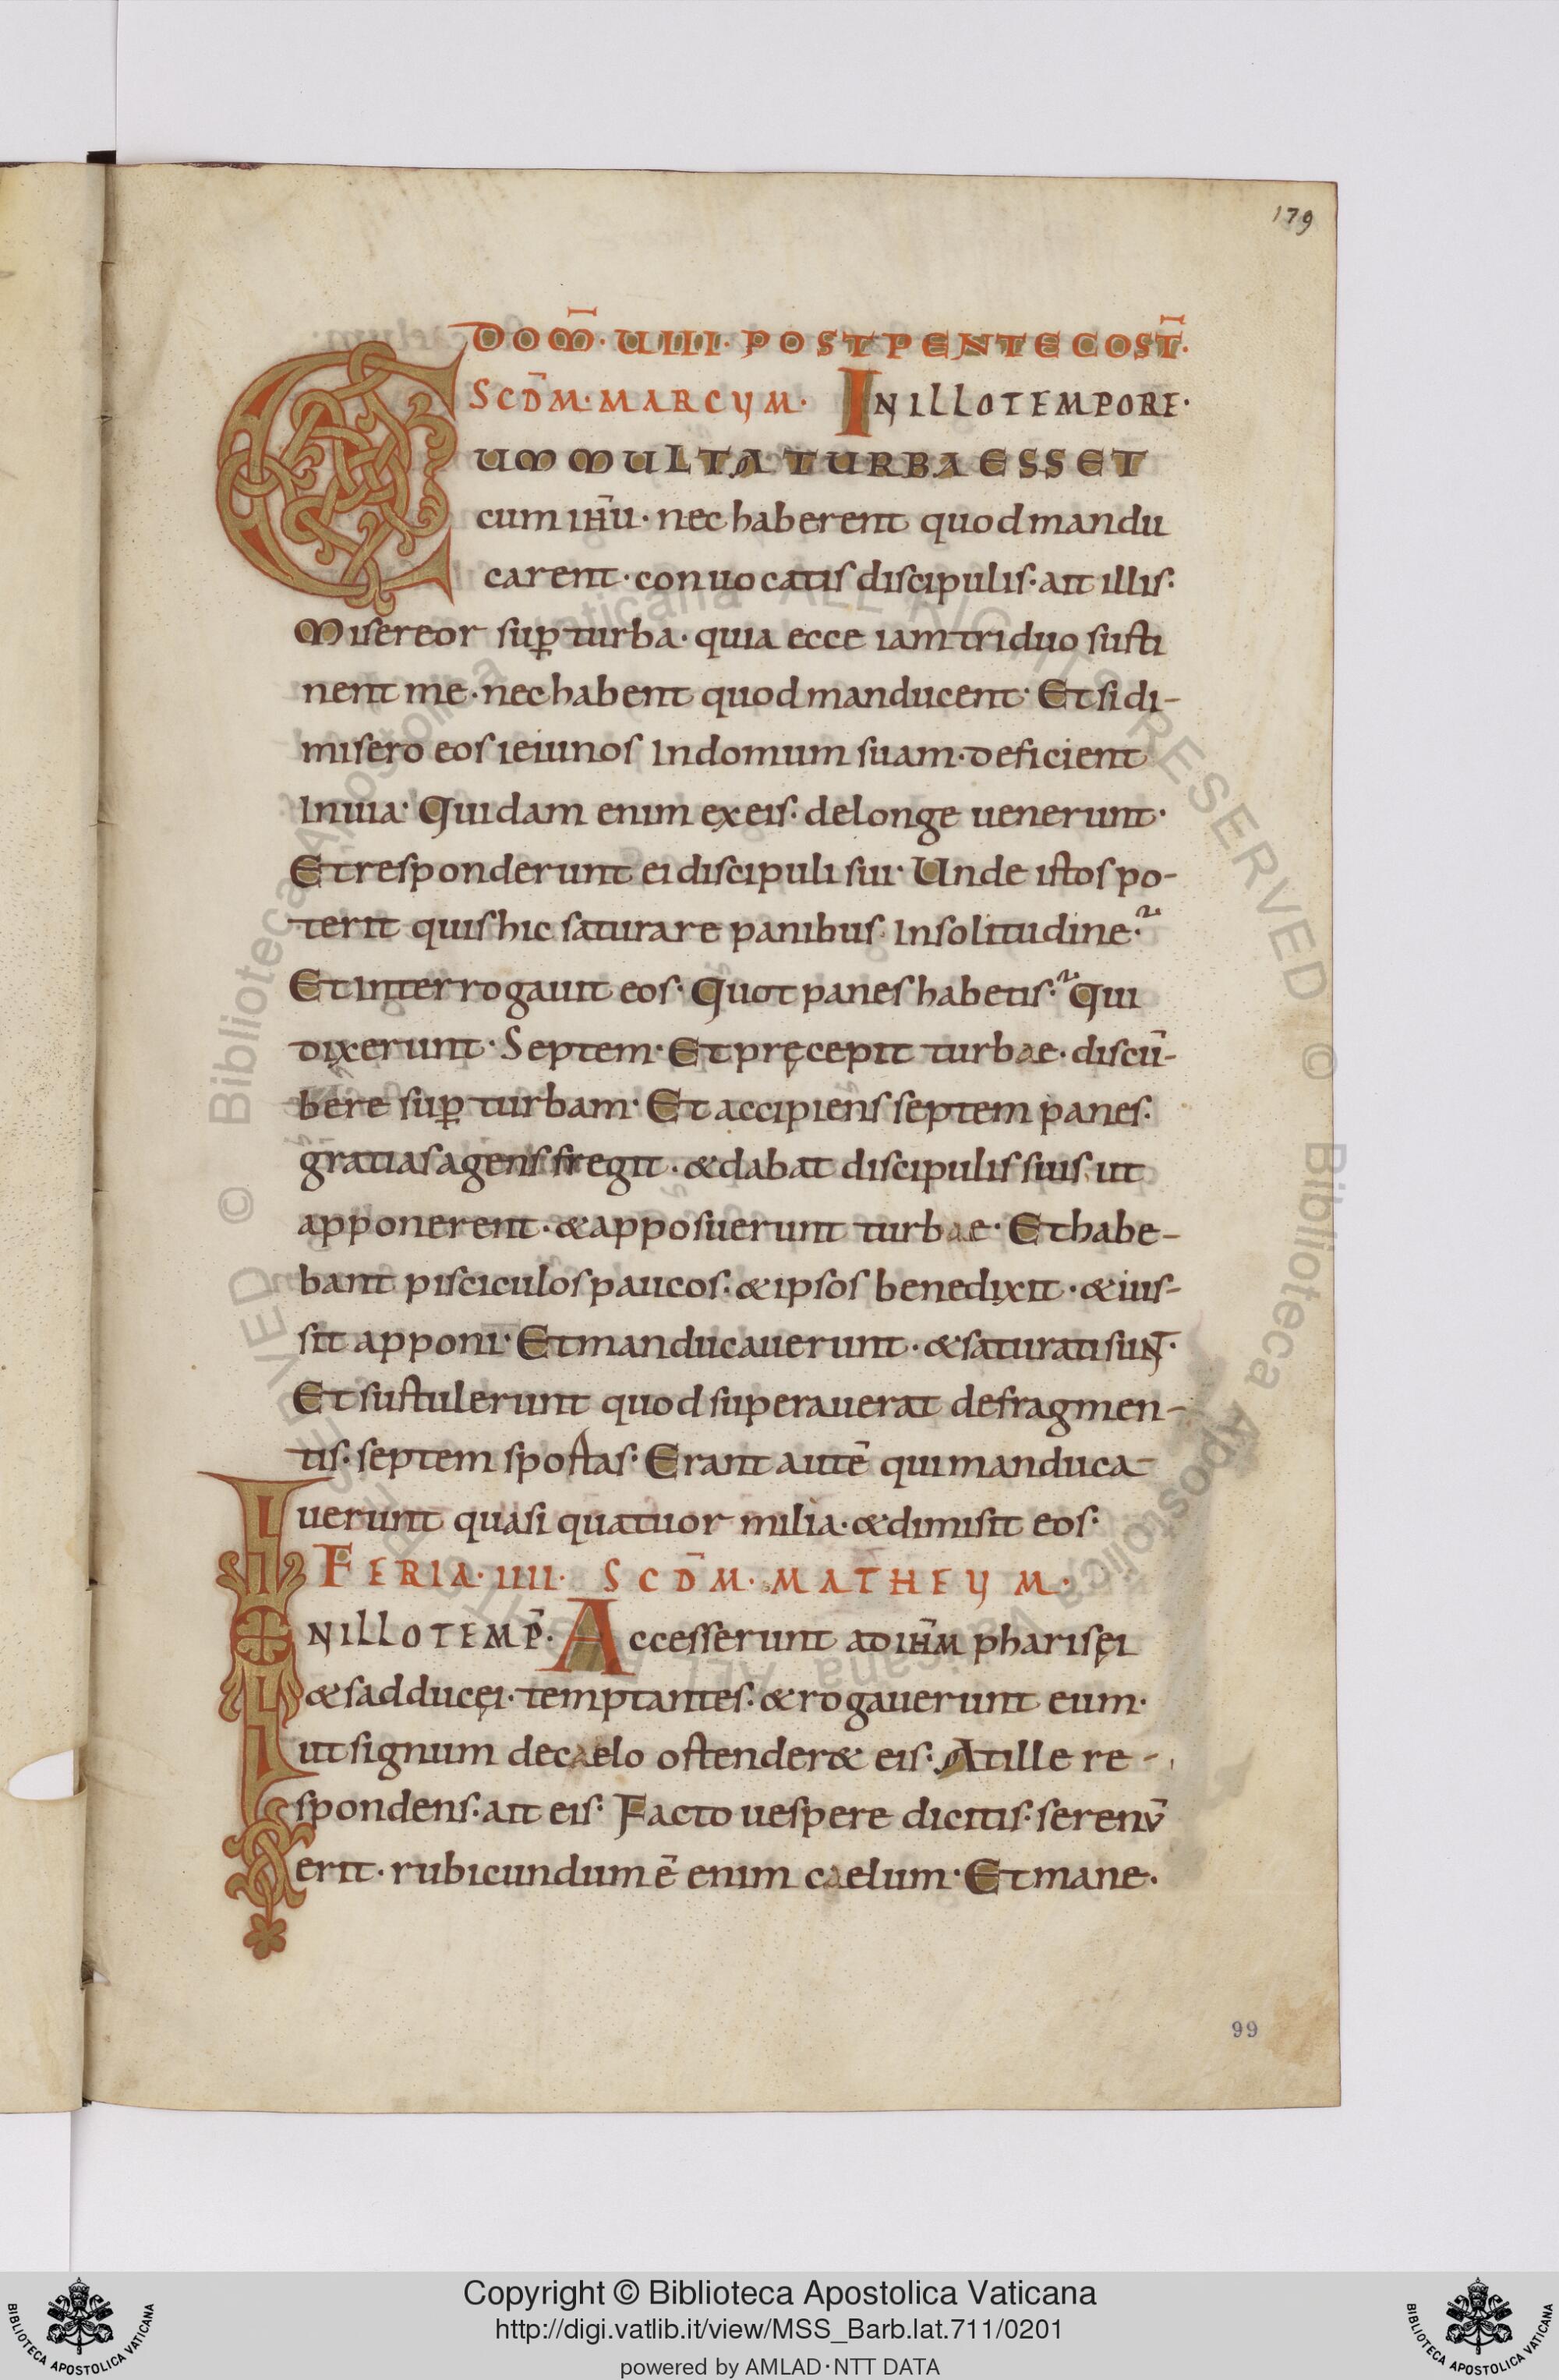 179
DOM̄· UIII· POST PENTECOST̄·
SCD̄M· MARCUM· IN ILLO TEMPORE·
CUM MULTA TURBA ESSET
cum ih̄u· nec haberent quod mandu
carent· conuocatis discipulis· ait illis·
Misereor sup̱ turba· quia ecce iam triduo susti
nent me· nec habent quod manducent· Et si di-
misero eos ieiunos in domum suam· deficient
in uia· Quidam enim ex eis· de longe uenerunt·
Et responderunt ei discipuli sui· Unde istos po-
terit quis hic saturare panibus in solitudine·
Et interrogauit eos· Quot panes habetis· Qui
dixerunt· Septem· Et pręcepit turbae· discū-
bere sup̱ turbam· Et accipiens septem panes·
gratias agens fregit· & dabat discipulis suis ut
apponerent· & apposuerunt turbae· Et habe-
bant pisciculos paucos· & ipsos benedixit· & ius-
sit apponi· Et manducauerunt· & saturati sunt·
Et sustulerunt quod superauerat de fragmen-
tis· septem sportas· Erant autē qui manduca-
uerunt quasi quatuor milia· & dimisit eos·
FERIA· IIII· SCD̄M· MATHEUM·
IN ILLO TEMP̄· Accesserunt ad ih̄m pharisęi
& sadducęi· temptantes· & rogauerunt eum·
ut signum de caelo ostender& eis· At ille re-
spondens· ait eis· Facto uespere dicitis· serenū
erit· rubicundum ē enim caelum· Et mane·
99
© Biblioteca Apostolica Vaticana ALL RIGHTS RESERVED © Biblioteca Apostolica Vaticana ALL RIGHTS RESERVED
BIBLIOTECA APOSTOLICA VATICANA
Copyright © Biblioteca Apostolica Vaticana
http://digi.vatlib.it/view/MSS_Barb.lat.711/0201
powered by AMLAD·NTT DATA
BIBLIOTECA APOSTOLICA VATICANA